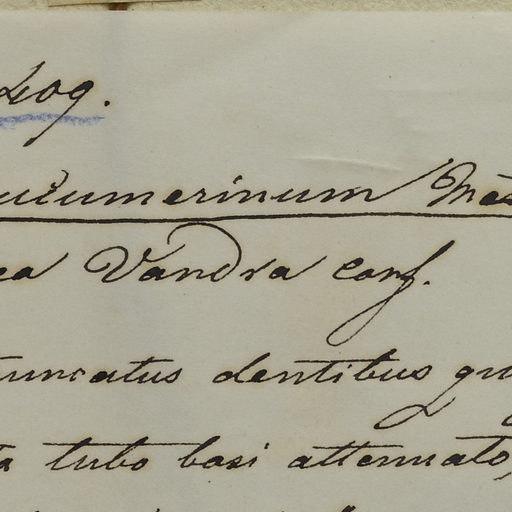 Log.
cucumerinum Mas
ea Vandra conf.
truncatus dentibus qu
ta tubo basi attenuato,